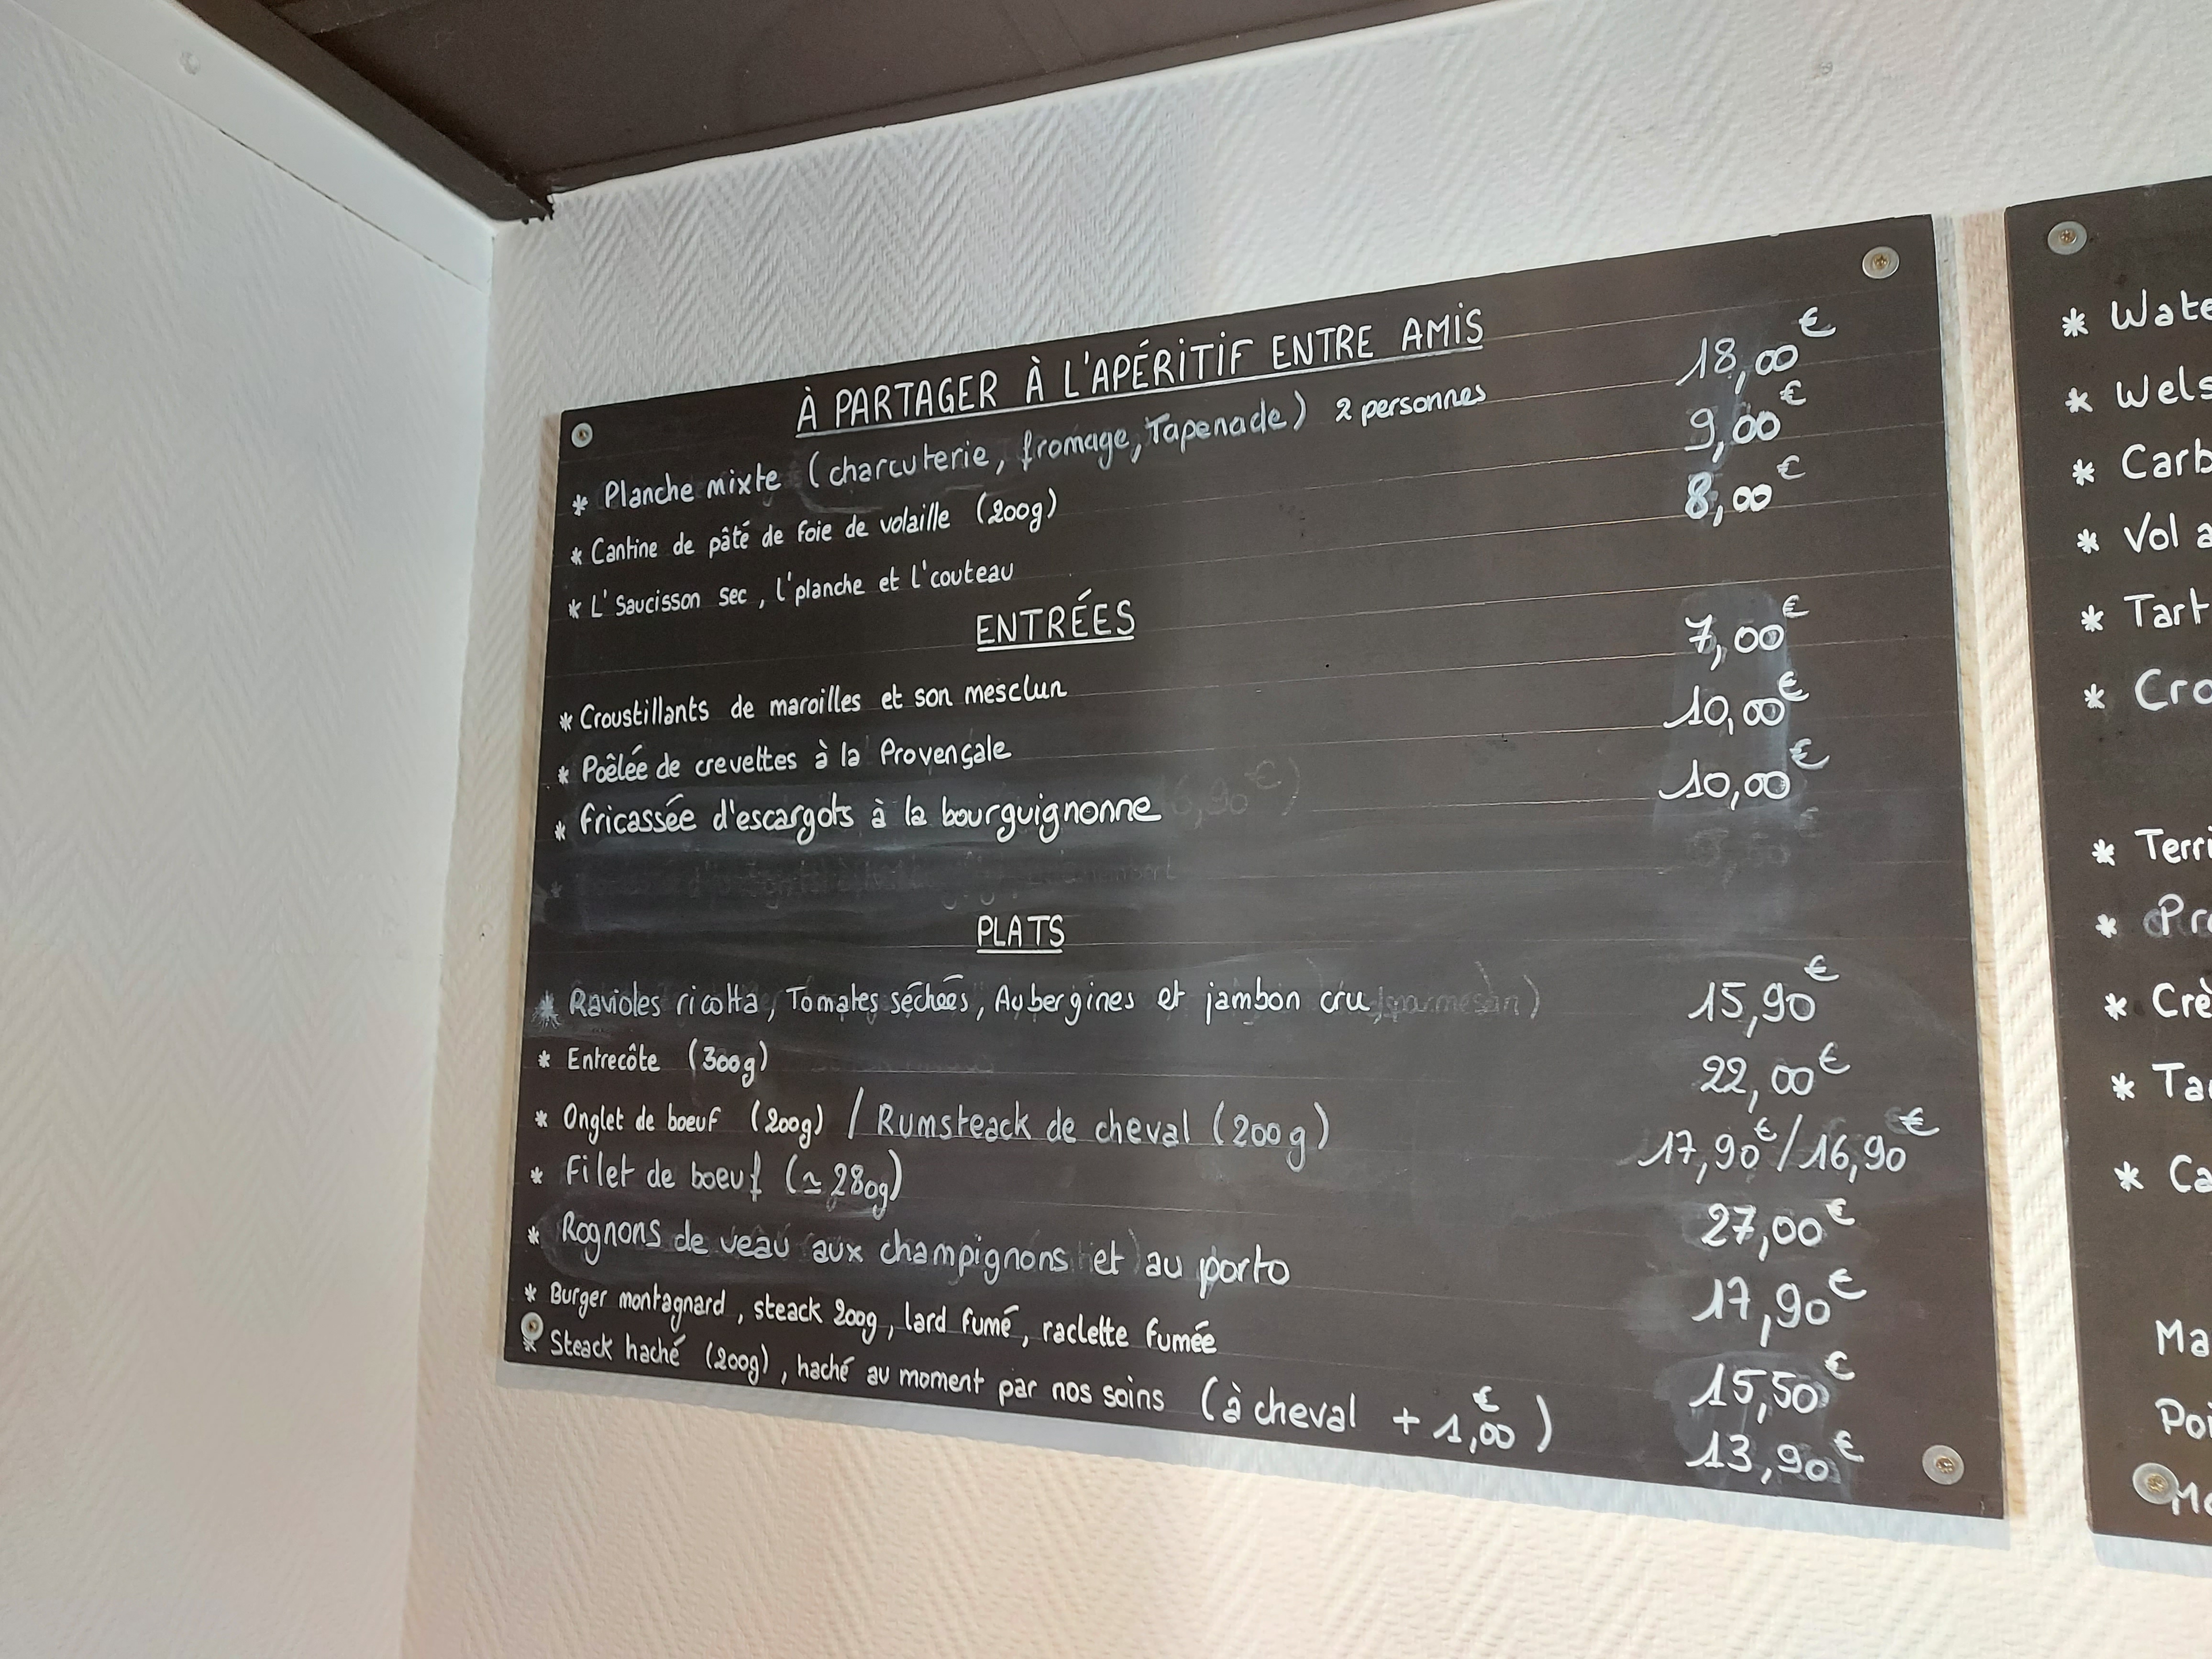 À PARTAGER À L'APÉRITIF ENTRE AMIS
* Planche mixte (charcuterie, fromage, Tapenade) 2 personnes 18,00€
* Cantine de pâté de foie de volaille (200g) 9,00€
* L'Saucisson sec, l'planche et l'couteau 8,00€
ENTRÉES
* Croustillants de maroilles et son mesclun 7,00€
* Poêlée de crevettes à la Provençale 10,00€
* fricassée d'escargots à la bourguignonne 10,00€
PLATS
* Ravioles ricotta, Tomates séchées, Aubergines et jambon cru 15,90€
* Entrecôte (300g) 22,00€
* Onglet de boeuf (200g) / Rumsteack de cheval (200g) 17,90€/16,90€
* Filet de boeuf (≃ 280g) 27,00€
* Rognons de veau aux champignons et au porto 17,90€
* Burger montagnard, steack 200g, lard fumé, raclette fumée 15,50€
* Steack haché (200g), haché au moment par nos soins (à cheval + 1,00€) 13,90€
* Wate
* Wels
* Carb
* Vol a
* Tart
* Cro
* Terri
* Pr
* Crè
* Ta
* Ca
Ma
Poi